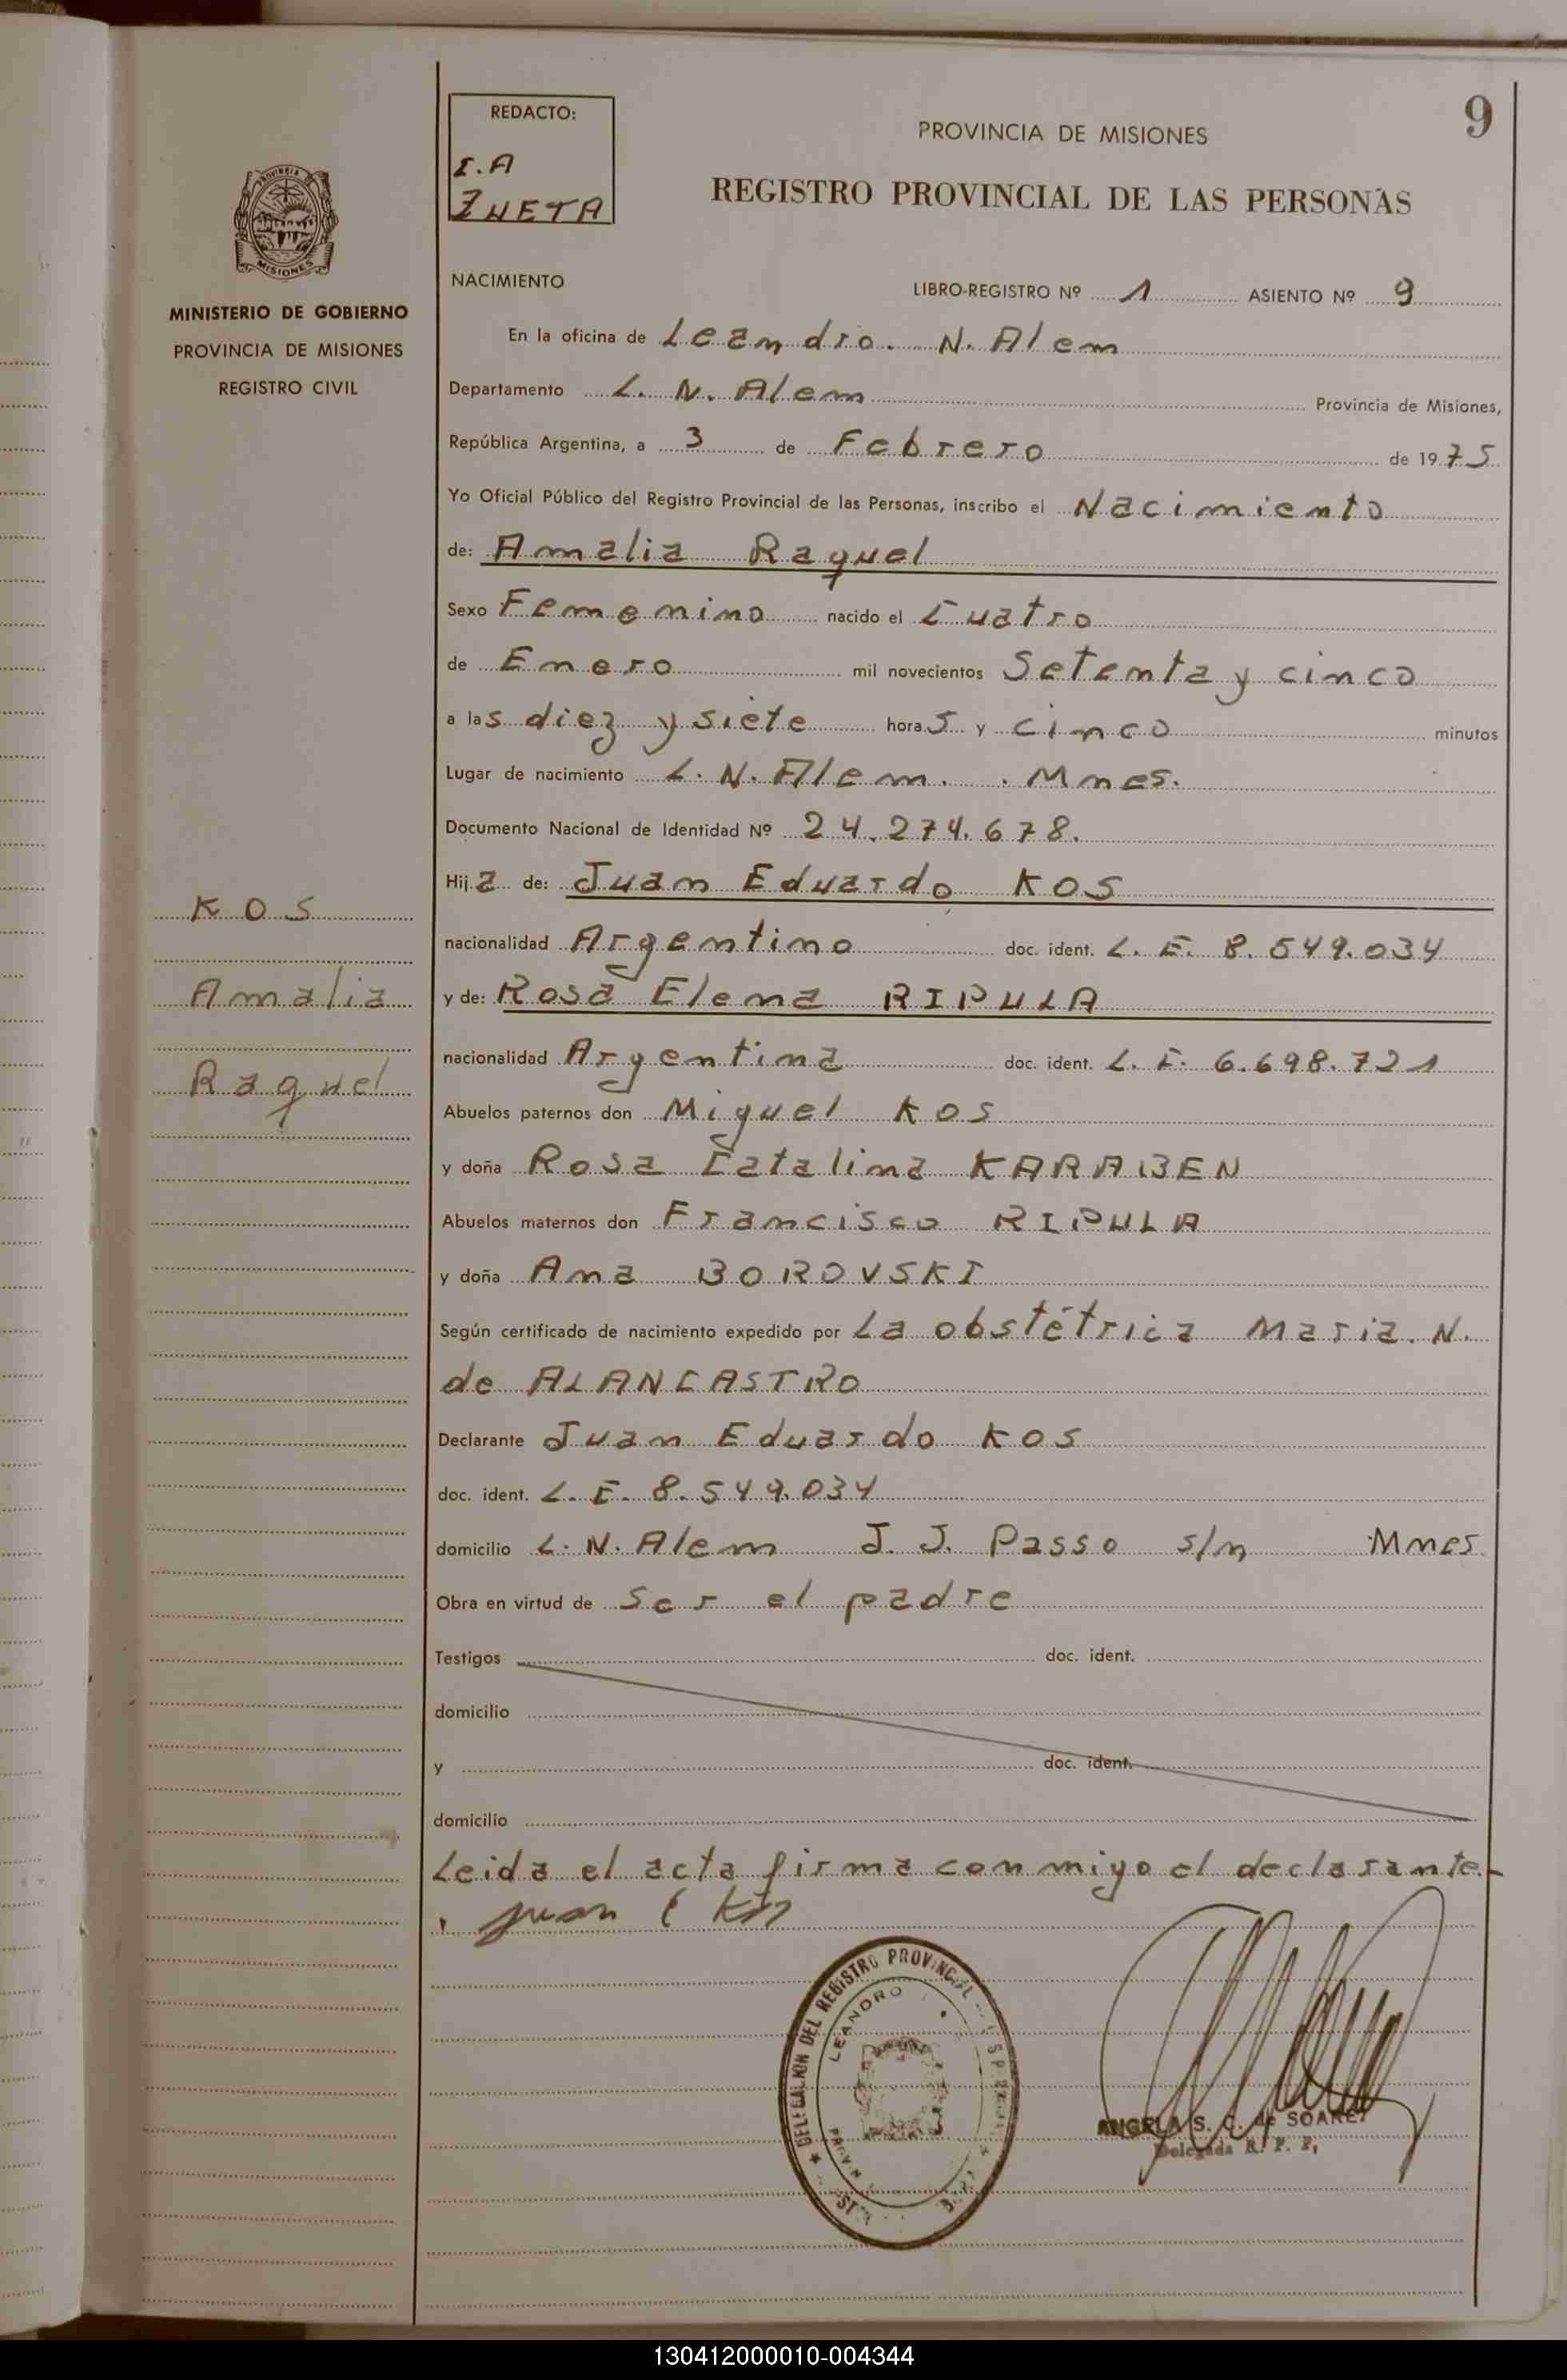 REDACTO:
I.A
ZUETA
9
PROVINCIA DE MISIONES
REGISTRO PROVINCIAL DE LAS PERSONAS
PROVINCIA DE
MISIONES
MINISTERIO DE GOBIERNO
PROVINCIA DE MISIONES
REGISTRO CIVIL
NACIMIENTO LIBRO-REGISTRO Nº 1 ASIENTO Nº 9
En la oficina de Leandro. N. Alem
Departamento L. N. Alem Provincia de Misiones,
República Argentina, a 3 de Febrero de 1975
Yo Oficial Público del Registro Provincial de las Personas, inscribo el Nacimiento
de: Amalia Raquel
Sexo Femenino nacido el Cuatro
de Enero mil novecientos Setenta y cinco
a las diez y siete horas y cinco minutos
Lugar de nacimiento L. N. Alem. . Mnes.
Documento Nacional de Identidad Nº 24.274.678.
Hija de: Juan Eduardo KOS
nacionalidad Argentino doc. ident. L. E. 8.549.034
y de: Rosa Elena RIPULA
nacionalidad Argentina doc. ident. L. E. 6.698.721
Abuelos paternos don Miguel KOS
y doña Rosa Catalina KARABEN
Abuelos maternos don Francisco RIPULA
y doña Ana BOROVSKI
Según certificado de nacimiento expedido por La obstétrica Maria. N.
de ALANCASTRO
Declarante Juan Eduardo KOS
doc. ident. L. E. 8.549.034
domicilio L. N. Alem J. J. Passo s/n Mnes
Obra en virtud de Ser el padre
Testigos doc. ident.
domicilio
y doc. ident.
domicilio
Leida el acta firma conmigo el declarante.-
KOS
Amalia
Raquel
Juan E Kos
DELEGACION DEL REGISTRO PROVINCIAL
LEANDRO
ANGELA S. C. de SOAREZ
Delegada R. P. P.
130412000010-004344